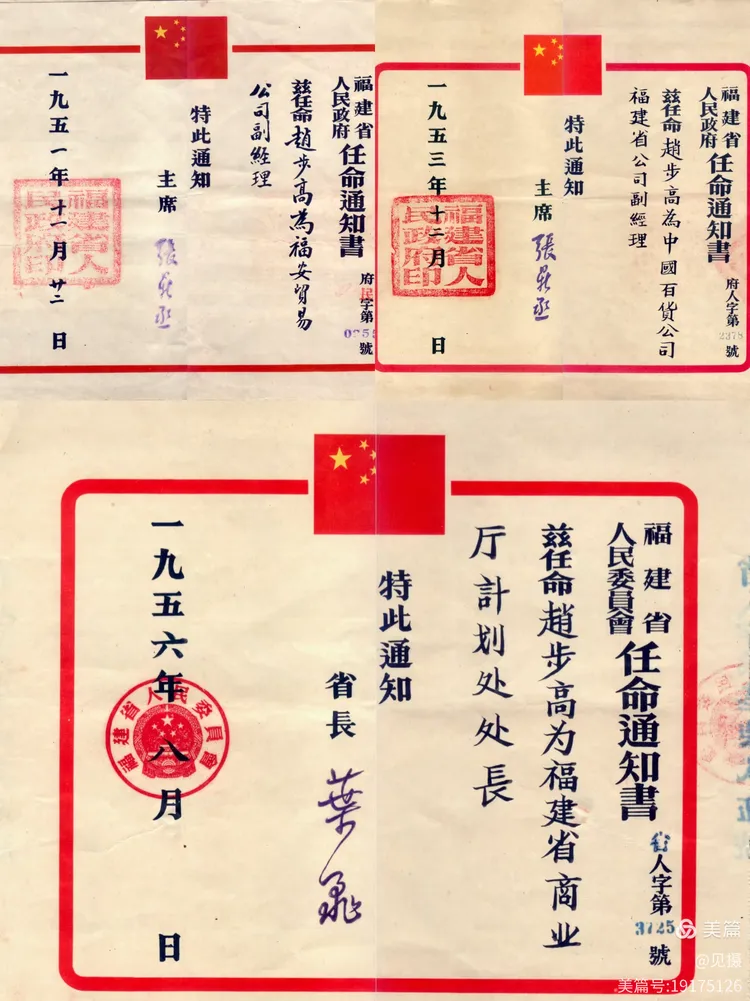 福建省
人民政府
任命通知書
府民字第
號
茲任命趙步高為福安貿易
公司副經理
特此通知
主席 張鼎丞
一九五一年十一月廿二日
福建省人民政府印
福建省
人民政府
任命通知書
府人字第
2378
號
茲任命趙步高為中國百貨公司
福建省公司副經理
特此通知
主席 張鼎丞
一九五三年十二月 日
福建省人民政府印
福建省
人民委員會
任命通知書
省人字第
3725
號
茲任命趙步高为福建省商业
厅計划处处長
特此通知
省長 葉飛
一九五六年八月 日
福建省人民委員會
美篇
@见摄
美篇号:19175126